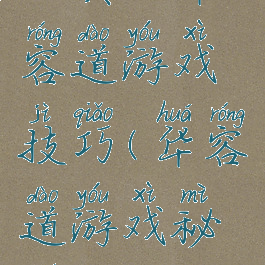 róng dào yóu xì
容道游戏
jì qiǎo huá róng
技巧(华容
dào yóu xì mì
道游戏秘